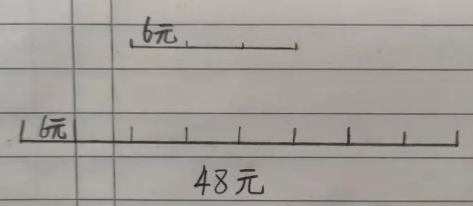 6元
6元
48元